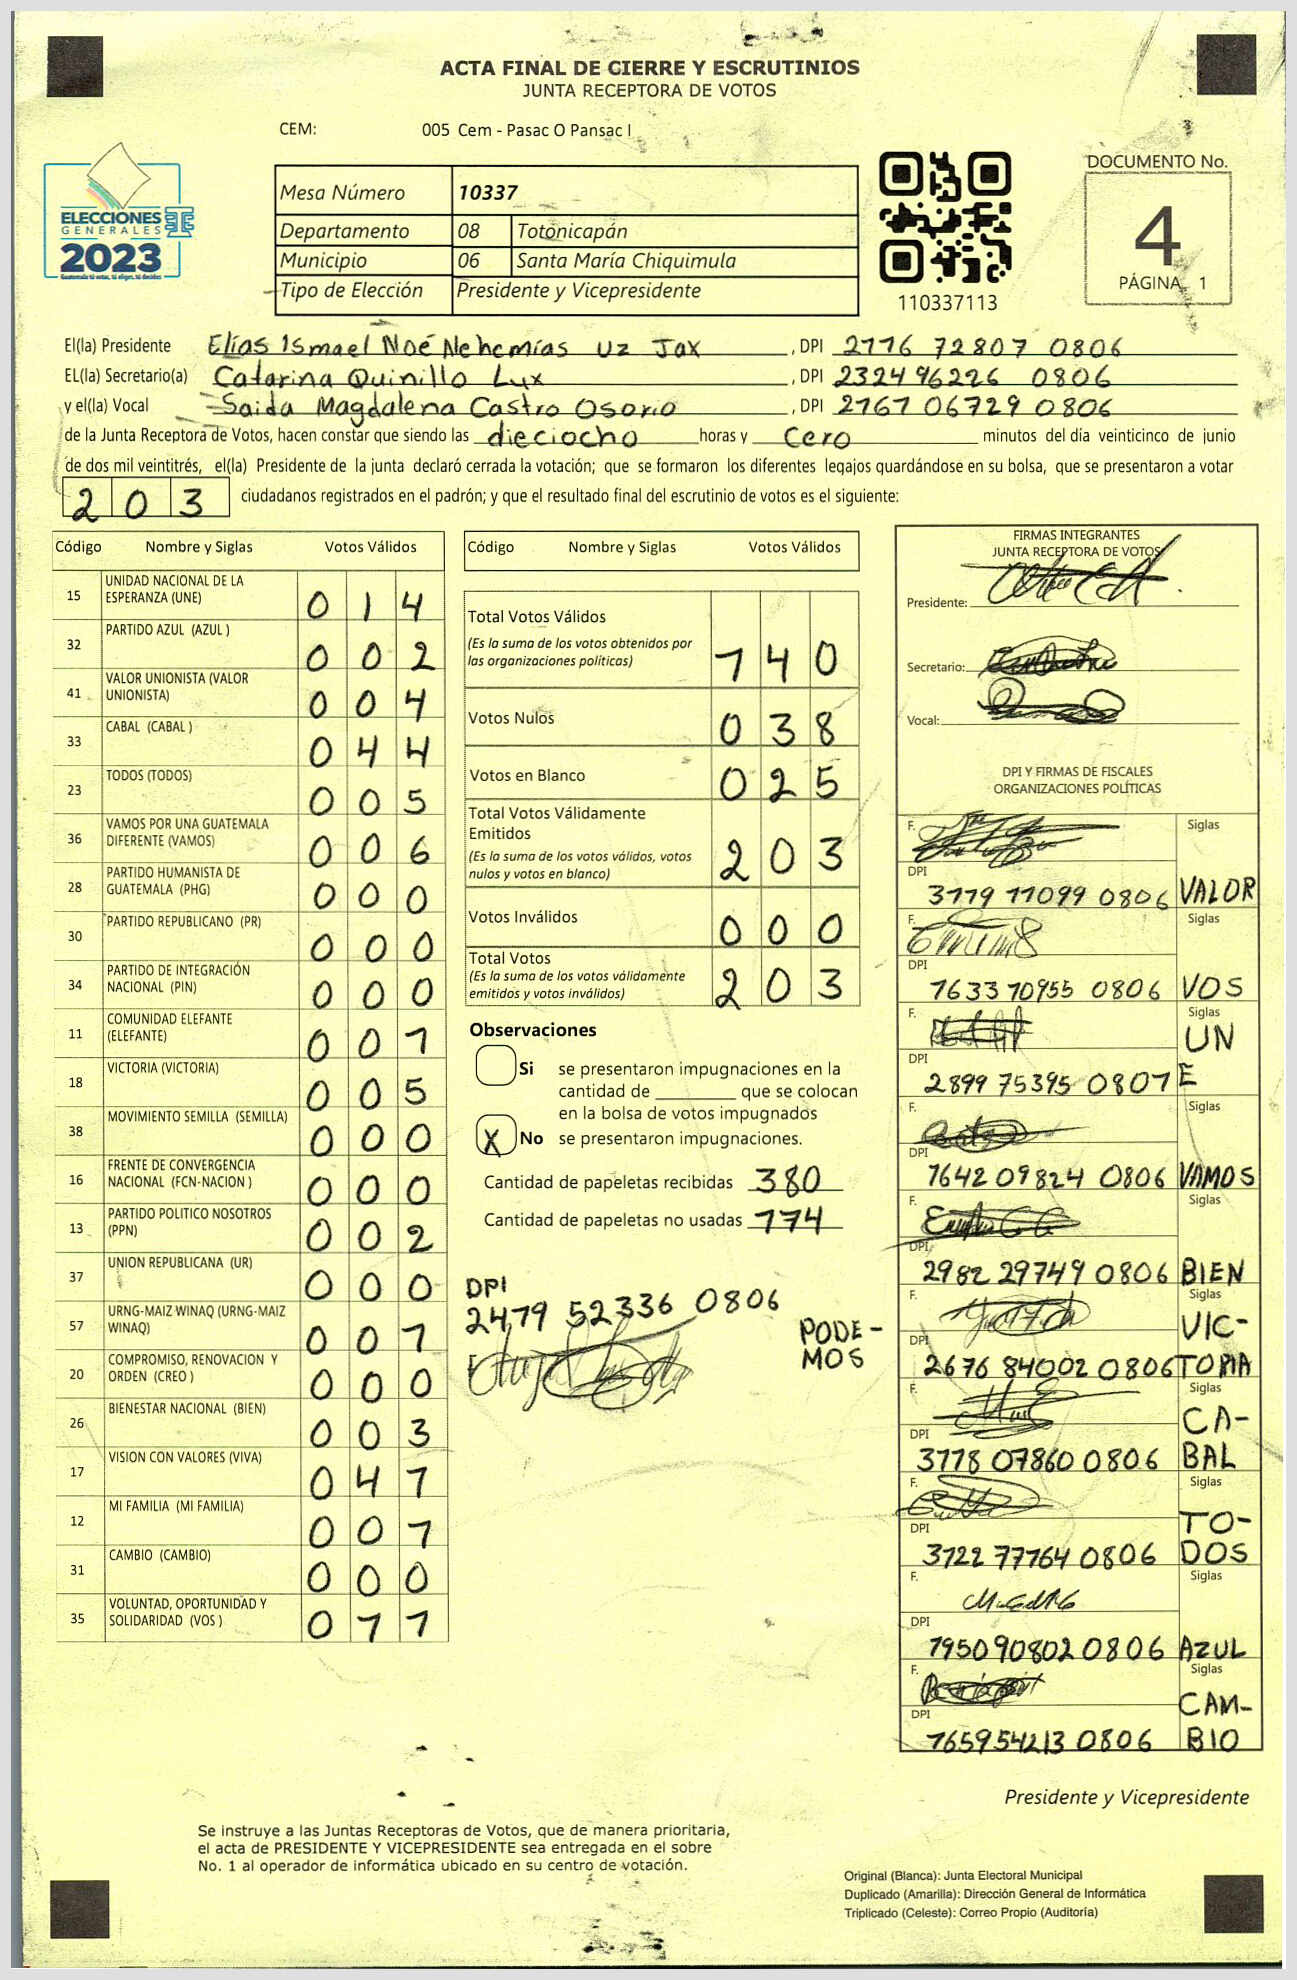 ACTA FINAL DE CIERRE Y ESCRUTINIOS
JUNTA RECEPTORA DE VOTOS
CEM: 005 Cem - Pasac O Pansac I
ELECCIONES
GENERALES
2023
Guatemala tú votas, tú eliges, tú decides
Mesa Número 10337
Departamento 08 Totonicapán
Municipio 06 Santa María Chiquimula
Tipo de Elección Presidente y Vicepresidente
110337113
DOCUMENTO No.
4
PÁGINA 1
El(la) Presidente Elías Ismael Noé Nehemías Uz Tax , DPI 2116 72807 0806
EL(la) Secretario(a) Catarina Quinillo Lux , DPI 2324 96226 0806
y el(la) Vocal Saida Magdalena Castro Osorio , DPI 2761 06729 0806
de la Junta Receptora de Votos, hacen constar que siendo las dieciocho horas y cero minutos del día veinticinco de junio
de dos mil veintitrés, el(la) Presidente de la junta declaró cerrada la votación; que se formaron los diferentes legajos guardándose en su bolsa, que se presentaron a votar
203 ciudadanos registrados en el padrón; y que el resultado final del escrutinio de votos es el siguiente:
Código Nombre y Siglas Votos Válidos
15 UNIDAD NACIONAL DE LA
ESPERANZA (UNE) 014
32 PARTIDO AZUL (AZUL ) 002
41 VALOR UNIONISTA (VALOR
UNIONISTA) 004
33 CABAL (CABAL ) 044
23 TODOS (TODOS) 005
36 VAMOS POR UNA GUATEMALA
DIFERENTE (VAMOS) 006
28 PARTIDO HUMANISTA DE
GUATEMALA (PHG) 000
30 PARTIDO REPUBLICANO (PR) 000
34 PARTIDO DE INTEGRACIÓN
NACIONAL (PIN) 000
11 COMUNIDAD ELEFANTE
(ELEFANTE) 001
18 VICTORIA (VICTORIA) 005
38 MOVIMIENTO SEMILLA (SEMILLA) 000
16 FRENTE DE CONVERGENCIA
NACIONAL (FCN-NACION ) 000
13 PARTIDO POLITICO NOSOTROS
(PPN) 002
37 UNION REPUBLICANA (UR) 000
57 URNG-MAIZ WINAQ (URNG-MAIZ
WINAQ) 001
20 COMPROMISO, RENOVACION Y
ORDEN (CREO ) 000
26 BIENESTAR NACIONAL (BIEN) 003
17 VISION CON VALORES (VIVA) 041
12 MI FAMILIA (MI FAMILIA) 001
31 CAMBIO (CAMBIO) 000
35 VOLUNTAD, OPORTUNIDAD Y
SOLIDARIDAD (VOS ) 011
Código Nombre y Siglas Votos Válidos
Total Votos Válidos
(Es la suma de los votos obtenidos por
las organizaciones políticas) 140
Votos Nulos 038
Votos en Blanco 025
Total Votos Válidamente
Emitidos
(Es la suma de los votos válidos, votos
nulos y votos en blanco) 203
Votos Inválidos 000
Total Votos
(Es la suma de los votos válidamente
emitidos y votos inválidos) 203
Observaciones
Si se presentaron impugnaciones en la
cantidad de ________ que se colocan
en la bolsa de votos impugnados
X No se presentaron impugnaciones.
Cantidad de papeletas recibidas 380
Cantidad de papeletas no usadas 174
DPI
2479 52336 0806
PODE-
MOS
FIRMAS INTEGRANTES
JUNTA RECEPTORA DE VOTOS
Presidente:
Secretario:
Vocal:
DPI Y FIRMAS DE FISCALES
ORGANIZACIONES POLÍTICAS
F. Siglas
DPI
3119 11099 0806 VALOR
F. Siglas
DPI
1633 10955 0806 VOS
F. Siglas
UN
DPI
2899 75395 0801 E
F. Siglas
DPI
1642 09824 0806 VAMOS
F. Siglas
DPI
2982 29149 0806 BIEN
F. Siglas
VIC-
DPI
2676 84002 0806 TORIA
F. Siglas
CA-
DPI
3118 07860 0806 BAL
F. Siglas
TO-
DPI
3122 11164 0806 DOS
F. Siglas
DPI
1950 90802 0806 AZUL
F. Siglas
CAM-
DPI
1659 54213 0806 BIO
Presidente y Vicepresidente
Se instruye a las Juntas Receptoras de Votos, que de manera prioritaria,
el acta de PRESIDENTE Y VICEPRESIDENTE sea entregada en el sobre
No. 1 al operador de informática ubicado en su centro de votación.
Original (Blanca): Junta Electoral Municipal
Duplicado (Amarilla): Dirección General de Informática
Triplicado (Celeste): Correo Propio (Auditoría)